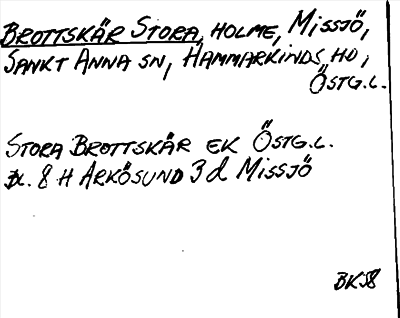 BROTTSKÄR STORA, HOLME, MISSJÖ,
SANKT ANNA SN, HAMMARKINDS, HD,
ÖSTG.L.
STORA BROTTSKÄR EK ÖSTG.L.
Bl. 8 H ARKÖSUND 3 d MISSJÖ
BK58